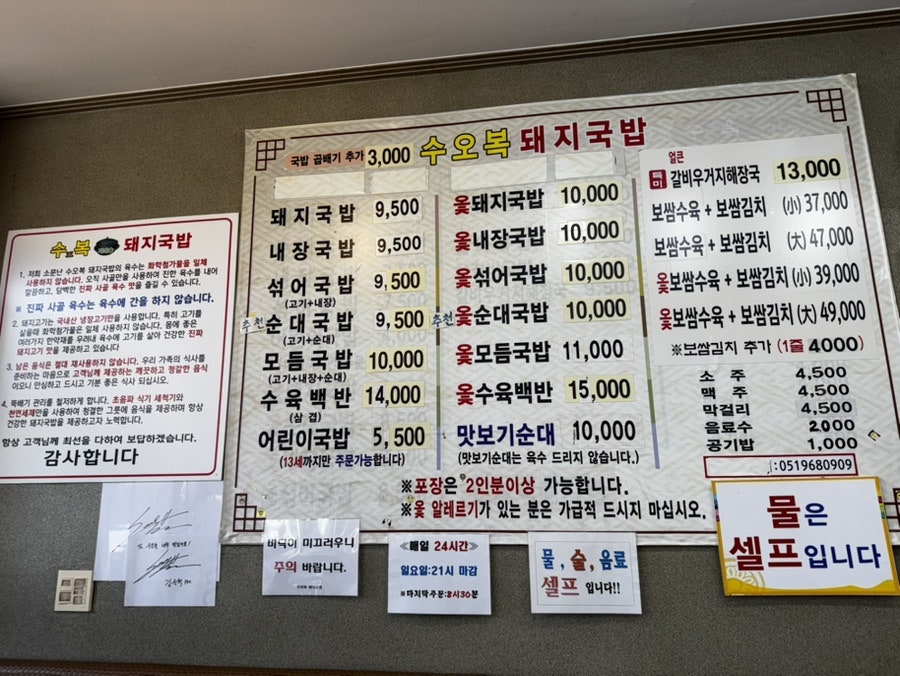 수오복 돼지국밥
1. 저희 소문난 수오복 돼지국밥의 육수는 화학첨가물을 일체
사용하지 않습니다. 오직 사골만을 사용하여 진한 육수를 내어
깔끔하고, 담백한 진짜 사골 육수 맛을 즐길 수 있습니다.
※ 진짜 사골 육수는 육수에 간을 하지 않습니다.
2. 돼지고기는 국내산 냉장고기만을 사용합니다. 특히 고기를
삶을때 화학첨가물은 일체 사용하지 않습니다. 몸에 좋은
여러가지 한약재를 우려내 육수에 고기를 삶아 건강한 진짜
돼지고기 맛을 제공하고 있습니다
3. 남은 음식은 절대 재사용하지 않습니다. 우리 가족의 식사를
준비하는 마음으로 고객님께 제공하는 깨끗하고 정갈한 음식
이오니 안심하고 드시고 기분 좋은 식사 되십시오.
4. 뚝배기 관리를 철저하게 합니다. 초음파 식기 세척기와
천연세제만을 사용하여 청결한 그릇에 음식을 제공하며 항상
건강한 돼지국밥을 제공하고자 노력합니다.
항상 고객님께 최선을 다하여 보답하겠습니다.
감사합니다
국밥 곱배기 추가 3,000
수오복 돼지국밥
돼지국밥 9,500
내장국밥 9,500
섞어국밥 9,500
(고기+내장)
추천 순대국밥 9,500
(고기+순대)
모듬국밥 10,000
(고기+내장+순대)
수육백반 14,000
(삼겹)
어린이국밥 5,500
(13세까지만 주문가능합니다)
옻돼지국밥 10,000
옻내장국밥 10,000
옻섞어국밥 10,000
추천 옻순대국밥 10,000
옻모듬국밥 11,000
옻수육백반 15,000
맛보기순대 10,000
(맛보기순대는 육수 드리지 않습니다.)
얼큰
특미 갈비우거지해장국 13,000
보쌈수육 + 보쌈김치 (小) 37,000
보쌈수육 + 보쌈김치 (大) 47,000
옻보쌈수육 + 보쌈김치 (小) 39,000
옻보쌈수육 + 보쌈김치 (大) 49,000
※보쌈김치 추가 (1줄 4000)
소주 4,500
맥주 4,500
막걸리 4,500
음료수 2,000
공기밥 1,000
:0519680909
※포장은 2인분이상 가능합니다.
※옻 알레르기가 있는 분은 가급적 드시지 마십시오.
바닥이 미끄러우니
주의 바랍니다.
<매일 24시간>
일요일:21시 마감
※마지막주문:8시30분
물,술,음료
셀프 입니다!!
물은
셀프입니다